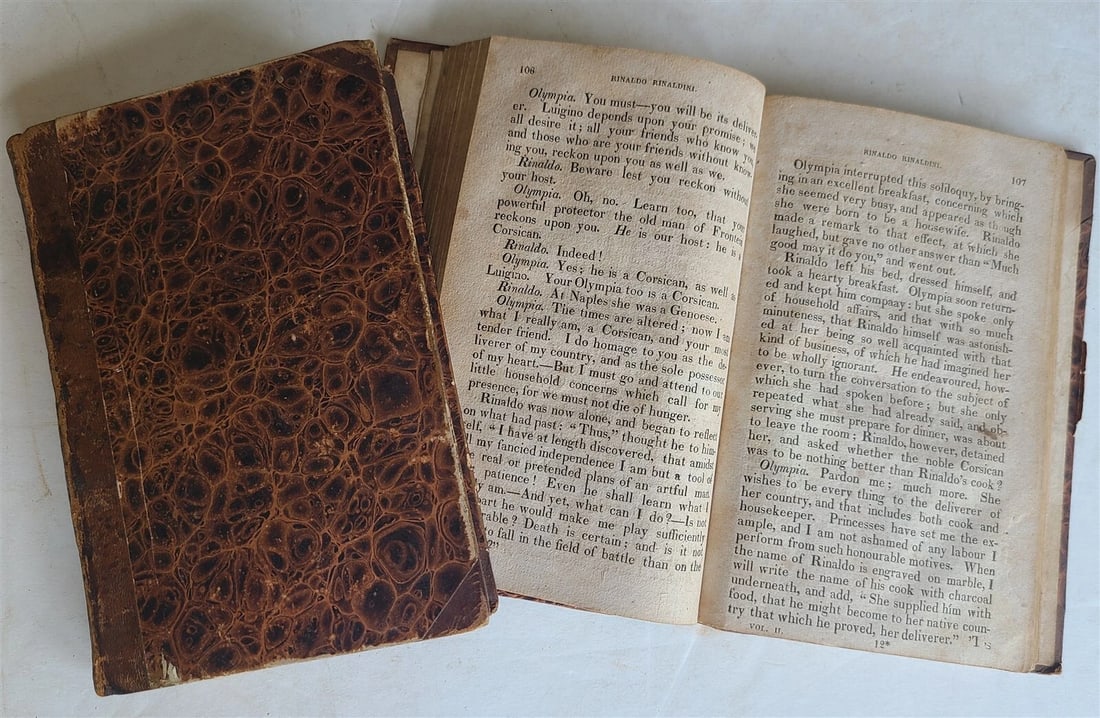 106
RINALDO RINALDINI.
Olympia. You must—you will be its deliver-
er. Luigino depends upon your promise; we
all desire it; all your friends who know you,
and those who are your friends without know-
ing you, reckon upon you as well as we.
Rinaldo. Beware lest you reckon without
your host.
Olympia. Oh, no. Learn too, that your
powerful protector the old man of Fronteia
reckons upon you. He is our host: he is a
Corsican.
Rinaldo. Indeed!
Olympia. Yes; he is a Corsican, as well as
Luigino. Your Olympia too is a Corsican.
Rinaldo. At Naples she was a Genoese.
Olympia. The times are altered; now I am
what I really am, a Corsican, and your most
tender friend. I do homage to you as the de-
liverer of my country, and as the sole possessor
of my heart.—But I must go and attend to our
little household concerns which call for my
presence, for we must not die of hunger.
Rinaldo was now alone, and began to reflect
on what had past: "Thus," thought he to him-
self, "I have at length discovered, that amidst
ll my fancied independence I am but a tool of
e real or pretended plans of an artful man.
patience! Even he shall learn what I
y am.—And yet, what can I do?—Is not
part he would make me play sufficiently
able? Death is certain; and is it not
o fall in the field of battle than on the
RINALDO RINALDINI.
107
Olympia interrupted this soliloquy, by bring-
ing in an excellent breakfast, concerning which
she seemed very busy, and appeared as th ugh
she were born to be a housewife. Rinaldo
made a remark to that effect, at which she
laughed, but gave no other answer than "Much
good may it do you," and went out.
Rinaldo left his bed, dressed himself, and
took a hearty breakfast. Olympia soon return-
ed and kept him company: but she spoke only
of household affairs, and that with so much
minuteness, that Rinaldo himself was astonish-
ed at her being so well acquainted with that
kind of business, of which he had imagined her
to be wholly ignorant. He endeavoured, how-
ever, to turn the conversation to the subject of
which she had spoken before; but she only
repeated what she had already said, and ob-
serving she must prepare for dinner, was about
to leave the room; Rinaldo, however, detained
her, and asked whether the noble Corsican
was to be nothing better than Rinaldo's cook?
Olympia. Pardon me; much more. She
wishes to be every thing to the deliverer of
her country, and that includes both cook and
housekeeper. Princesses have set me the ex-
ample, and I am not ashamed of any labour I
perform from such honourable motives. When
the name of Rinaldo is engraved on marble, I
will write the name of his cook with charcoal
underneath, and add, "She supplied him with
food, that he might become to her native coun-
try that which he proved, her deliverer." 'T s
VOL. II.
12*